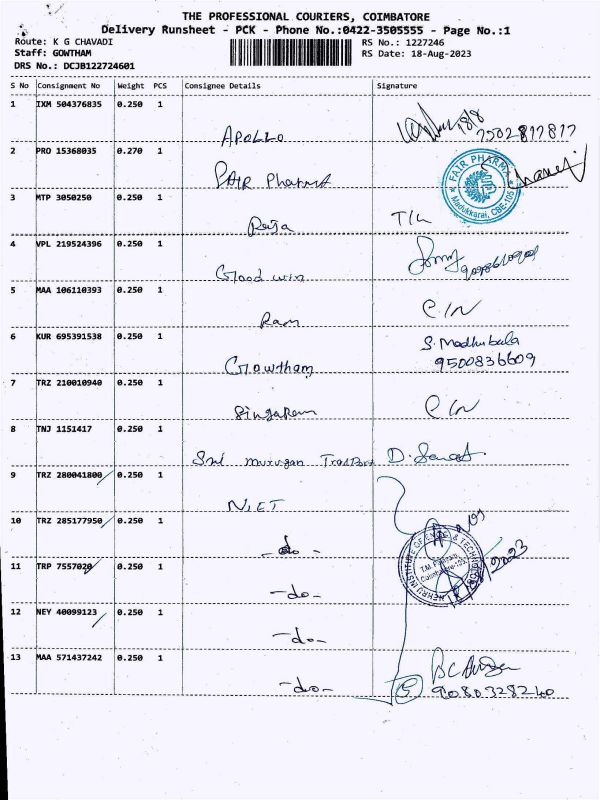 THE PROFESSIONAL COURIERS, COIMBATORE
Delivery Runsheet - PCK - Phone No.:0422-3505555 - Page No.:1
Route: K G CHAVADI RS No.: 1227246
Staff: GOWTHAM RS Date: 18-Aug-2023
DRS No.: DCJB122724601
S No Consignment No Weight PCS Consignee Details Signature
1 IXM 504376835 0.250 1
APOLLO 18/8 7502817817
2 PRO 15368035 0.270 1
FAIR Pharma FAIR PHARMA Madukkarai, CBE-105
3 MTP 3050250 0.250 1
Raja T/L
4 VPL 219524396 0.250 1
Good win
5 MAA 106110393 0.250 1
Ram C/N
6 KUR 695391538 0.250 1 S. Madhubala
Gowtham 9500836609
7 TRZ 210010940 0.250 1
Singaram C/N
8 TNJ 1151417 0.250 1
Sri murugan Trasport D.
9 TRZ 280041800 0.250 1
NIET
10 TRZ 285177950 0.250 1
-do-
NEHRU INSTITUTE OF ENGG & TECHNOLOGY
T.M. Palayam,
Coimbatore-105
11 TRP 7557020 0.250 1
-do-
12 NEY 40099123 0.250 1
-do-
13 MAA 571437242 0.250 1
-do- 5 9080328240